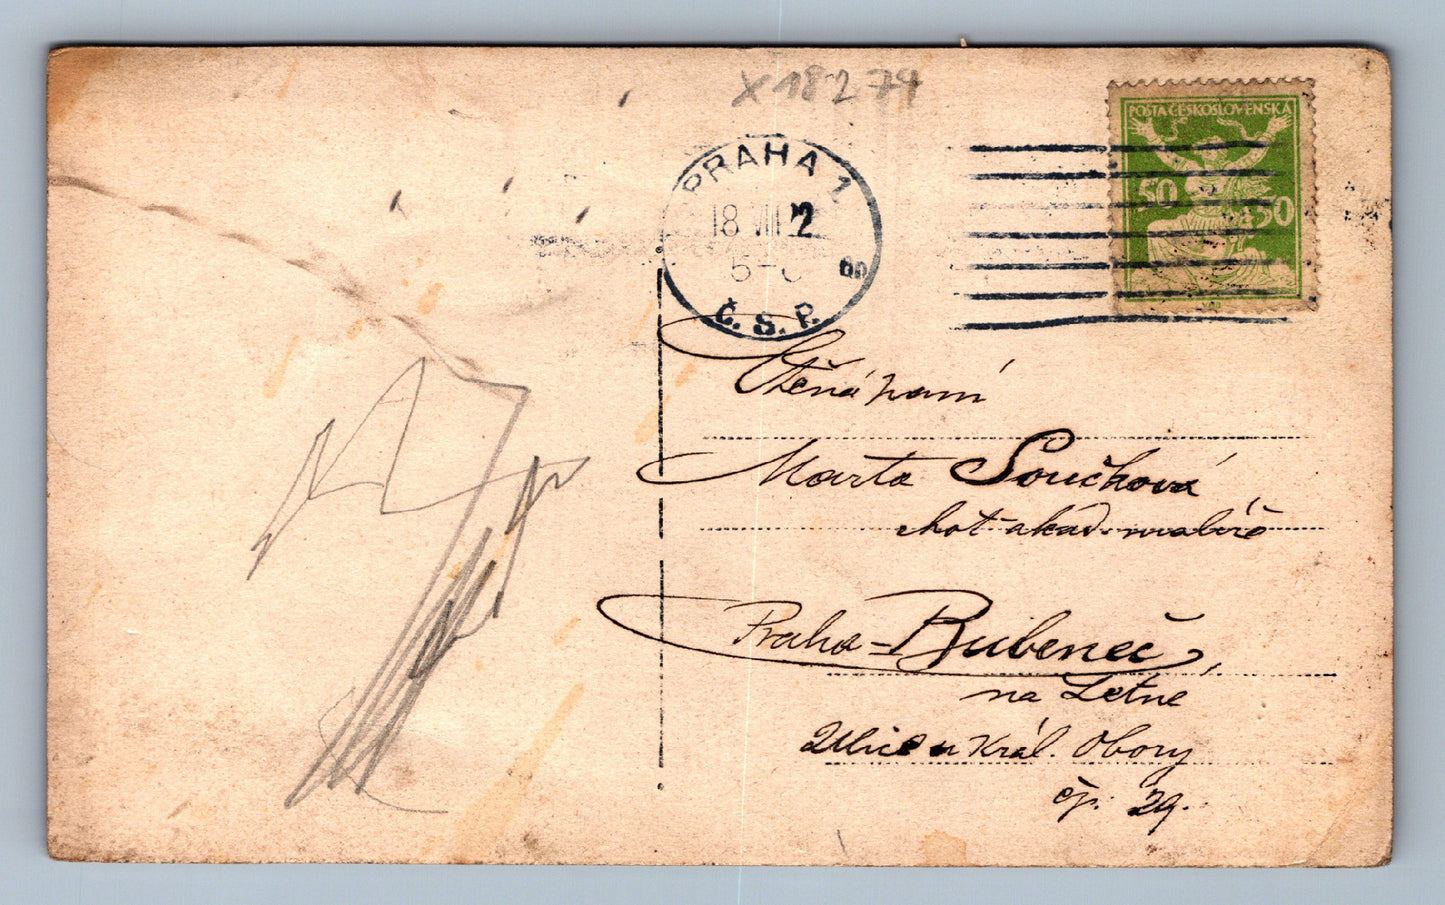 X 18279
POŠTA ČESKOSLOVENSKÁ
50 50
PRAHA 1
18 VIII 22
Č. S. P.
Ctěná paní
Marta Součková
chot akad. malíře
Praha-Bubeneč,
na Letne
Ulice u Král. Obory
čp. 29.